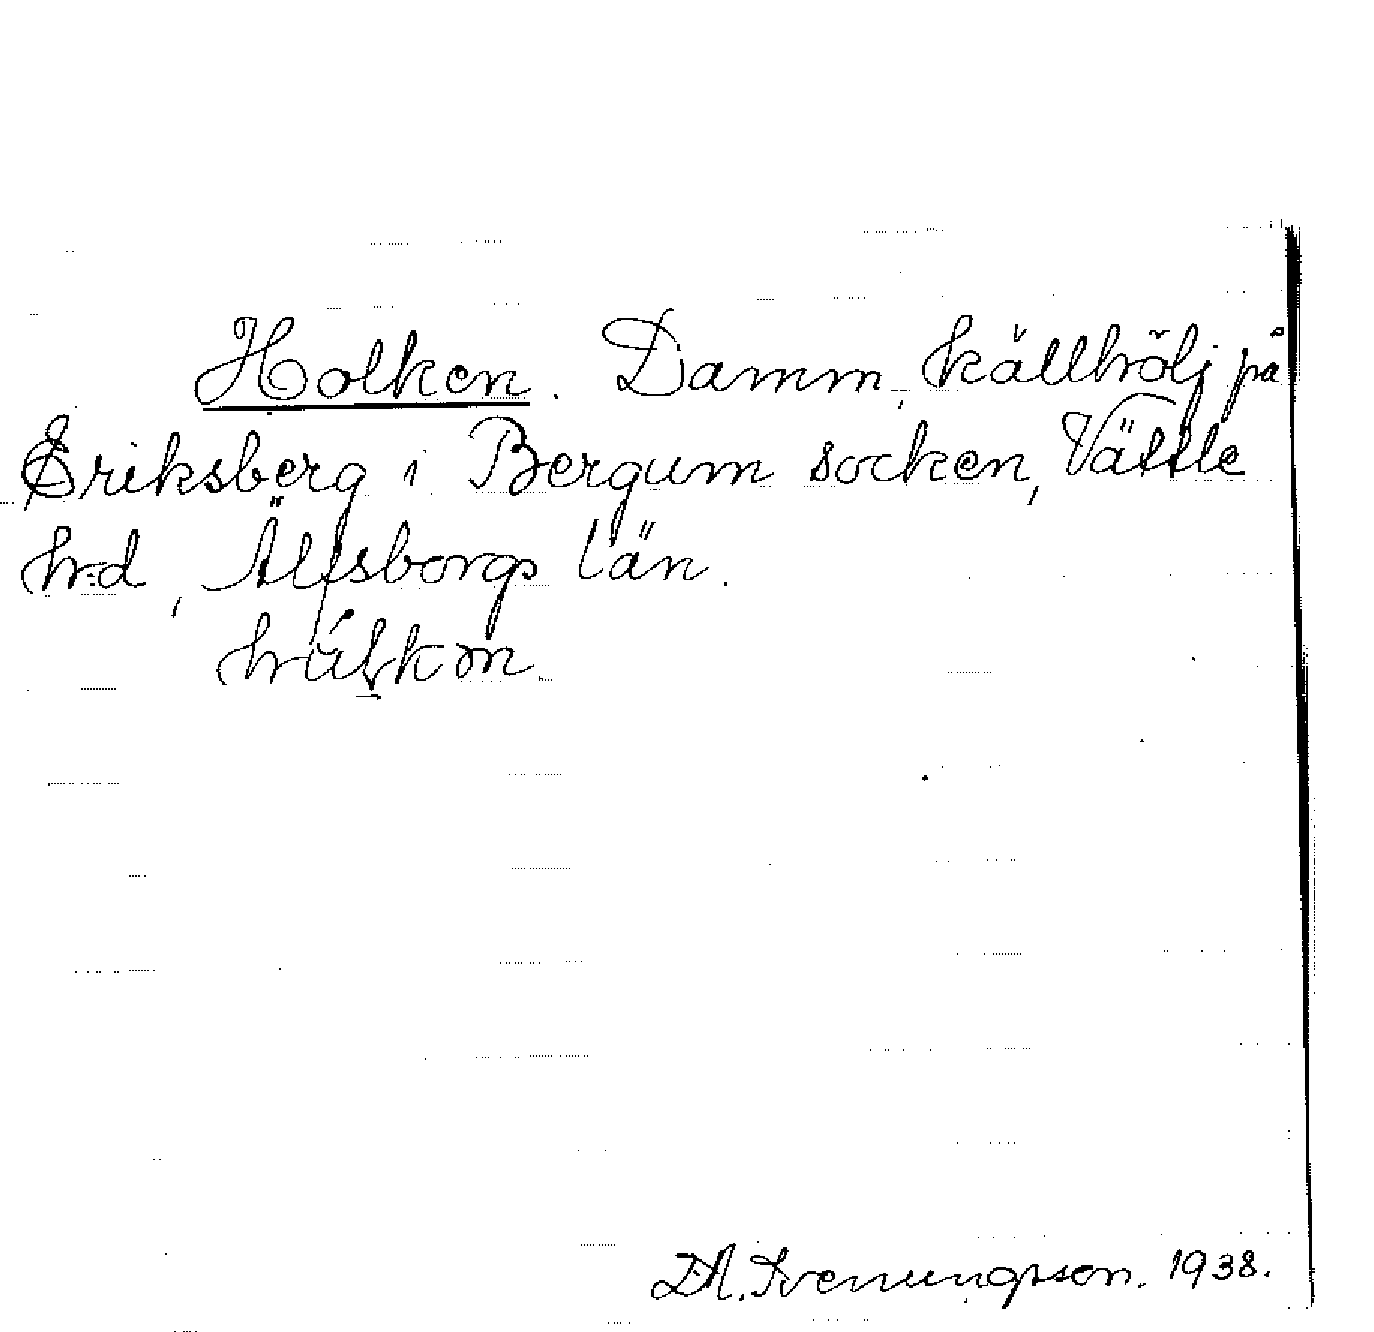 Holken. Damm, källhölj på
Eriksberg i Bergum socken, Vättle
hd, Älfsborgs län.
Svenungsson. 1938.